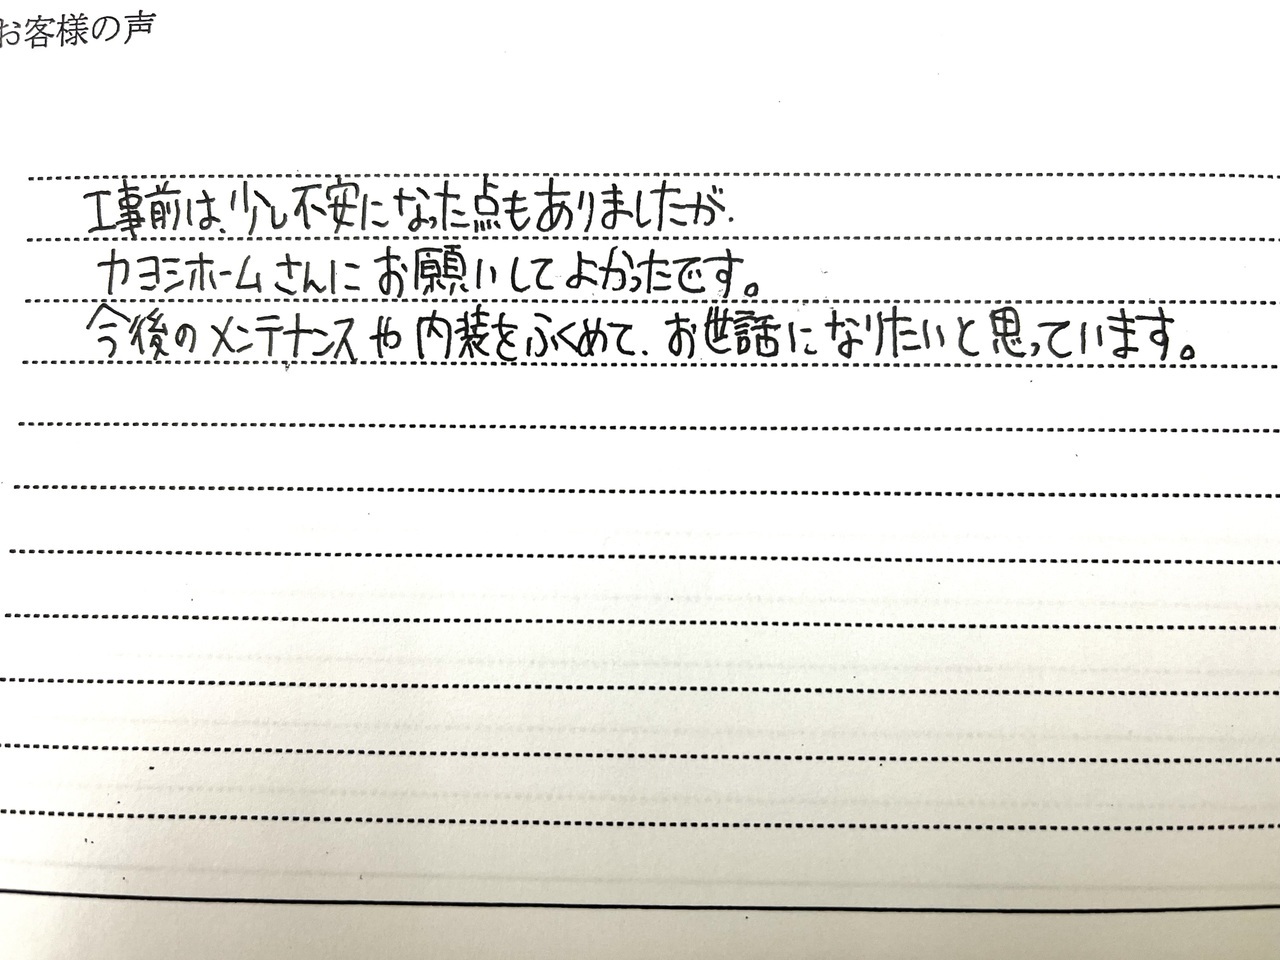 お客様の声
工事前は、少し不安になった点もありましたが、
カヨシホームさんにお願いしてよかったです。
今後のメンテナンスや内装をふくめて、お世話になりたいと思っています。